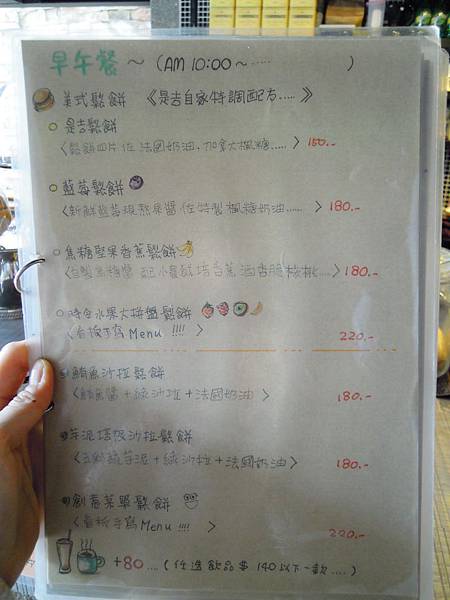 早午餐 ～ (AM 10:00～ ······ )
美式鬆餅 《是吉自家特調配方.....》
是吉鬆餅
〈鬆餅四片佐法國奶油、加拿大楓糖.....〉 150.-
藍莓鬆餅
〈新鮮藍莓現熬果醬佐特製楓糖奶油......〉 180.-
焦糖堅果香蕉鬆餅
〈自製焦糖醬 香蕉 核桃....〉 180.-
時令水果大拼盤鬆餅
〈看板手寫Menu !!!! 〉 220.-
鮪魚沙拉鬆餅
〈鮪魚醬+綠沙拉+法國奶油 〉 180.-
芋泥培根沙拉鬆餅
芋泥+綠沙拉+法國奶油〉 180.-
創意菜單鬆餅
〈看板手寫Menu !!!! 〉 220.-
+80 .... (任選飲品$140以下一款....)